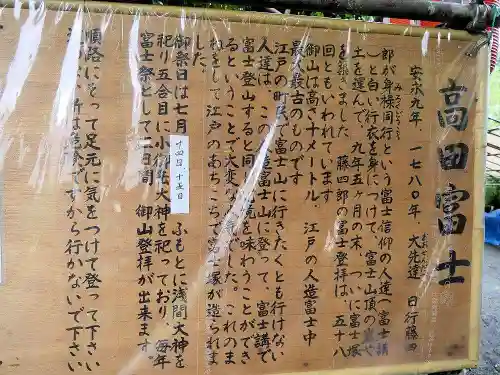 高田富士
安永九年 一七八〇年、大先達 日行藤四
郎が身禄同行という富士信仰の人達(富士講
)と白い行衣を身につけて、富士山頂の
土を運んで、九年五ヶ月の末、ついに富士塚
を築きました。藤四郎の富士登拝は、五十八
回ともいわれています
御山は高さ十メートル、江戸の人造富士中
最大最古のものです
江戸の町民で富士山に行きたくとも行けない
人達は、この人造富士山に登って、富士講で
富士登山すると同じ心境を味わうことができ
るということで大変な人気でした。これのま
ねをして江戸のあちこちで富士塚が造られま
した。
御祭日は七月十四日、十五日 ふもとに浅間大神を
祀り五合目に小御岳大神を祀っており、毎年
富士祭として二日間、御山登拝が出来ます。
順路にそって足元に気をつけて登って下さい
所は危険ですから行かないで下さい